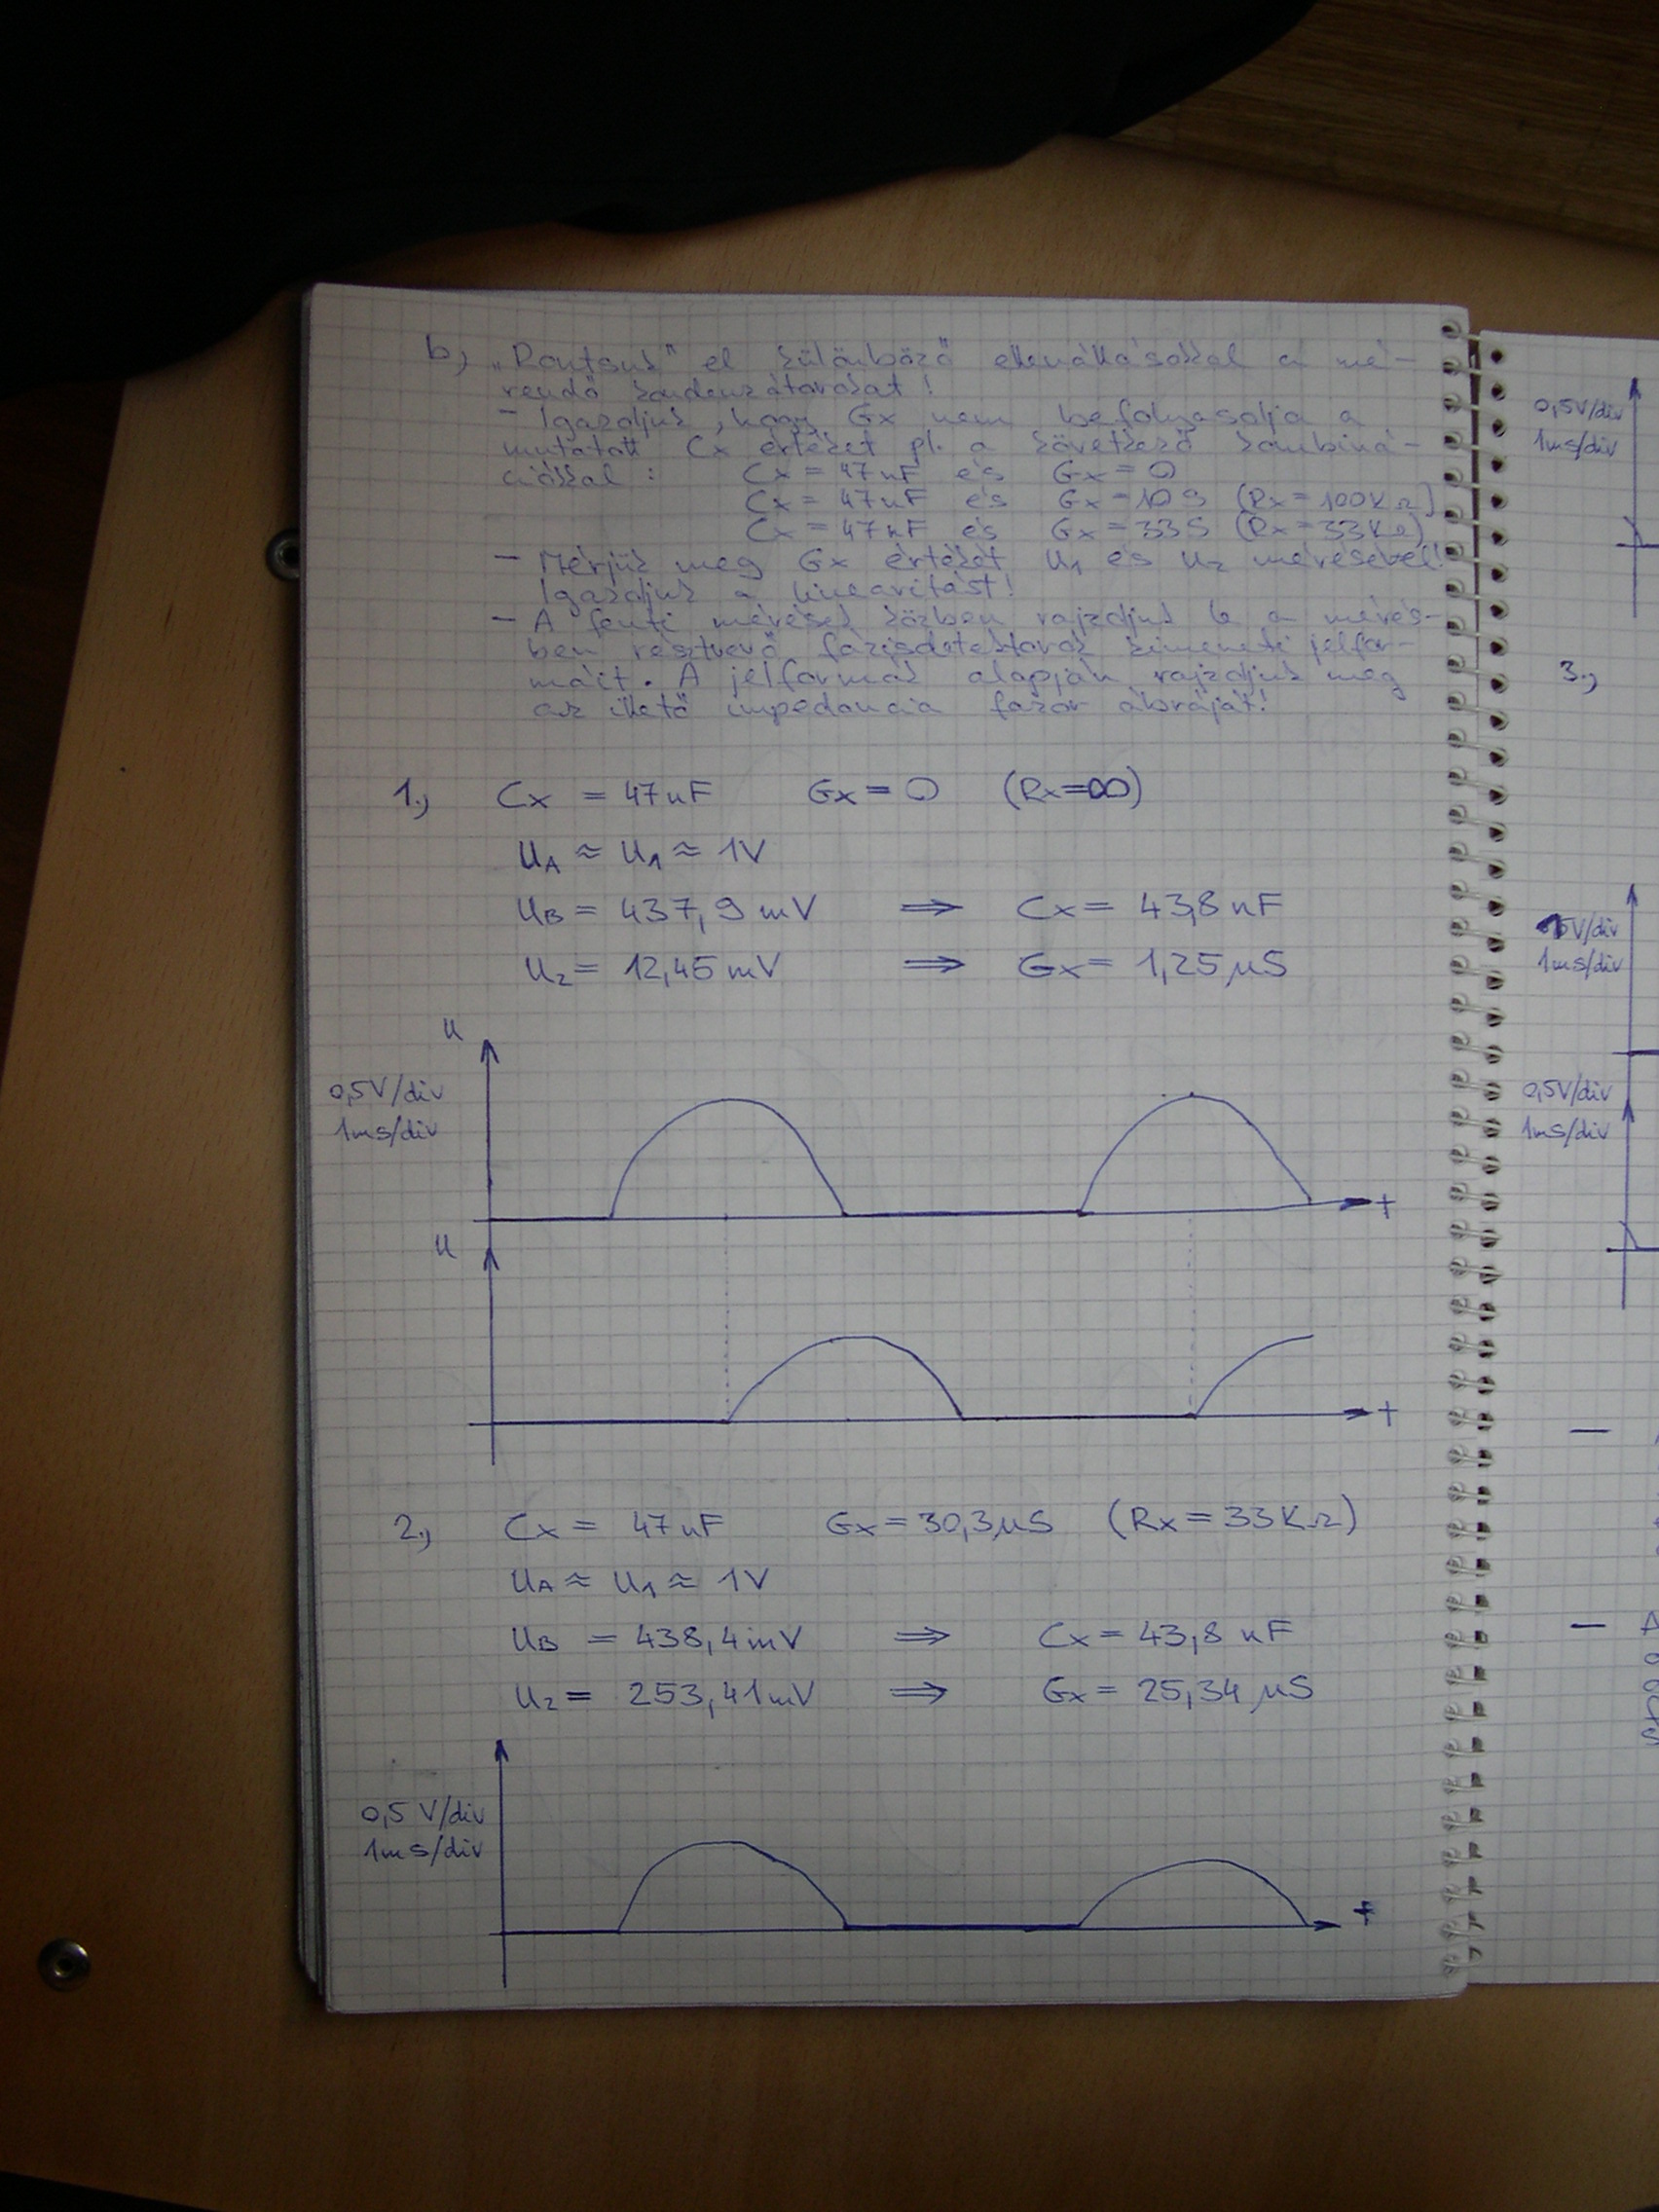 b, „Rontsuk" el különböző ellenállásokkal a mé-
rendő kondenzátorokat!
- Igazoljuk, hogy Gx nem befolyásolja a
mutatott Cx értéket pl. a következő kombiná-
ciókkal: Cx = 47nF és Gx = 0
Cx = 47nF és Gx = 10 S (Rx = 100KΩ)
Cx = 47nF és Gx = 33 S (Rx = 33KΩ)
- Mérjük meg Gx értékét U1 és U2 mérésével!
Igazoljuk a linearitást!
- A fenti mérések közben rajzoljuk le a mérés-
ben résztvevő fázisdetektorok kimeneti jelfor-
máit. A jelformák alapján rajzoljuk meg
az illető impedancia fazor ábráját!
1., Cx = 47nF Gx = 0 (Rx=∞)
UA ≈ U1 ≈ 1V
UB = 437,9 mV ⇒ Cx = 43,8 nF
U2 = 12,45 mV ⇒ Gx = 1,25 μS
U
0,5V/div
1ms/div
t
U
t
2., Cx = 47nF Gx = 30,3 μS (Rx = 33KΩ)
UA ≈ U1 ≈ 1V
UB = 438,4 mV ⇒ Cx = 43,8 nF
U2 = 253,41 mV ⇒ Gx = 25,34 μS
0,5 V/div
1ms/div
t
0,5V/div
1ms/div
3.,
V/div
1ms/div
0,5V/div
1ms/div
-
- A